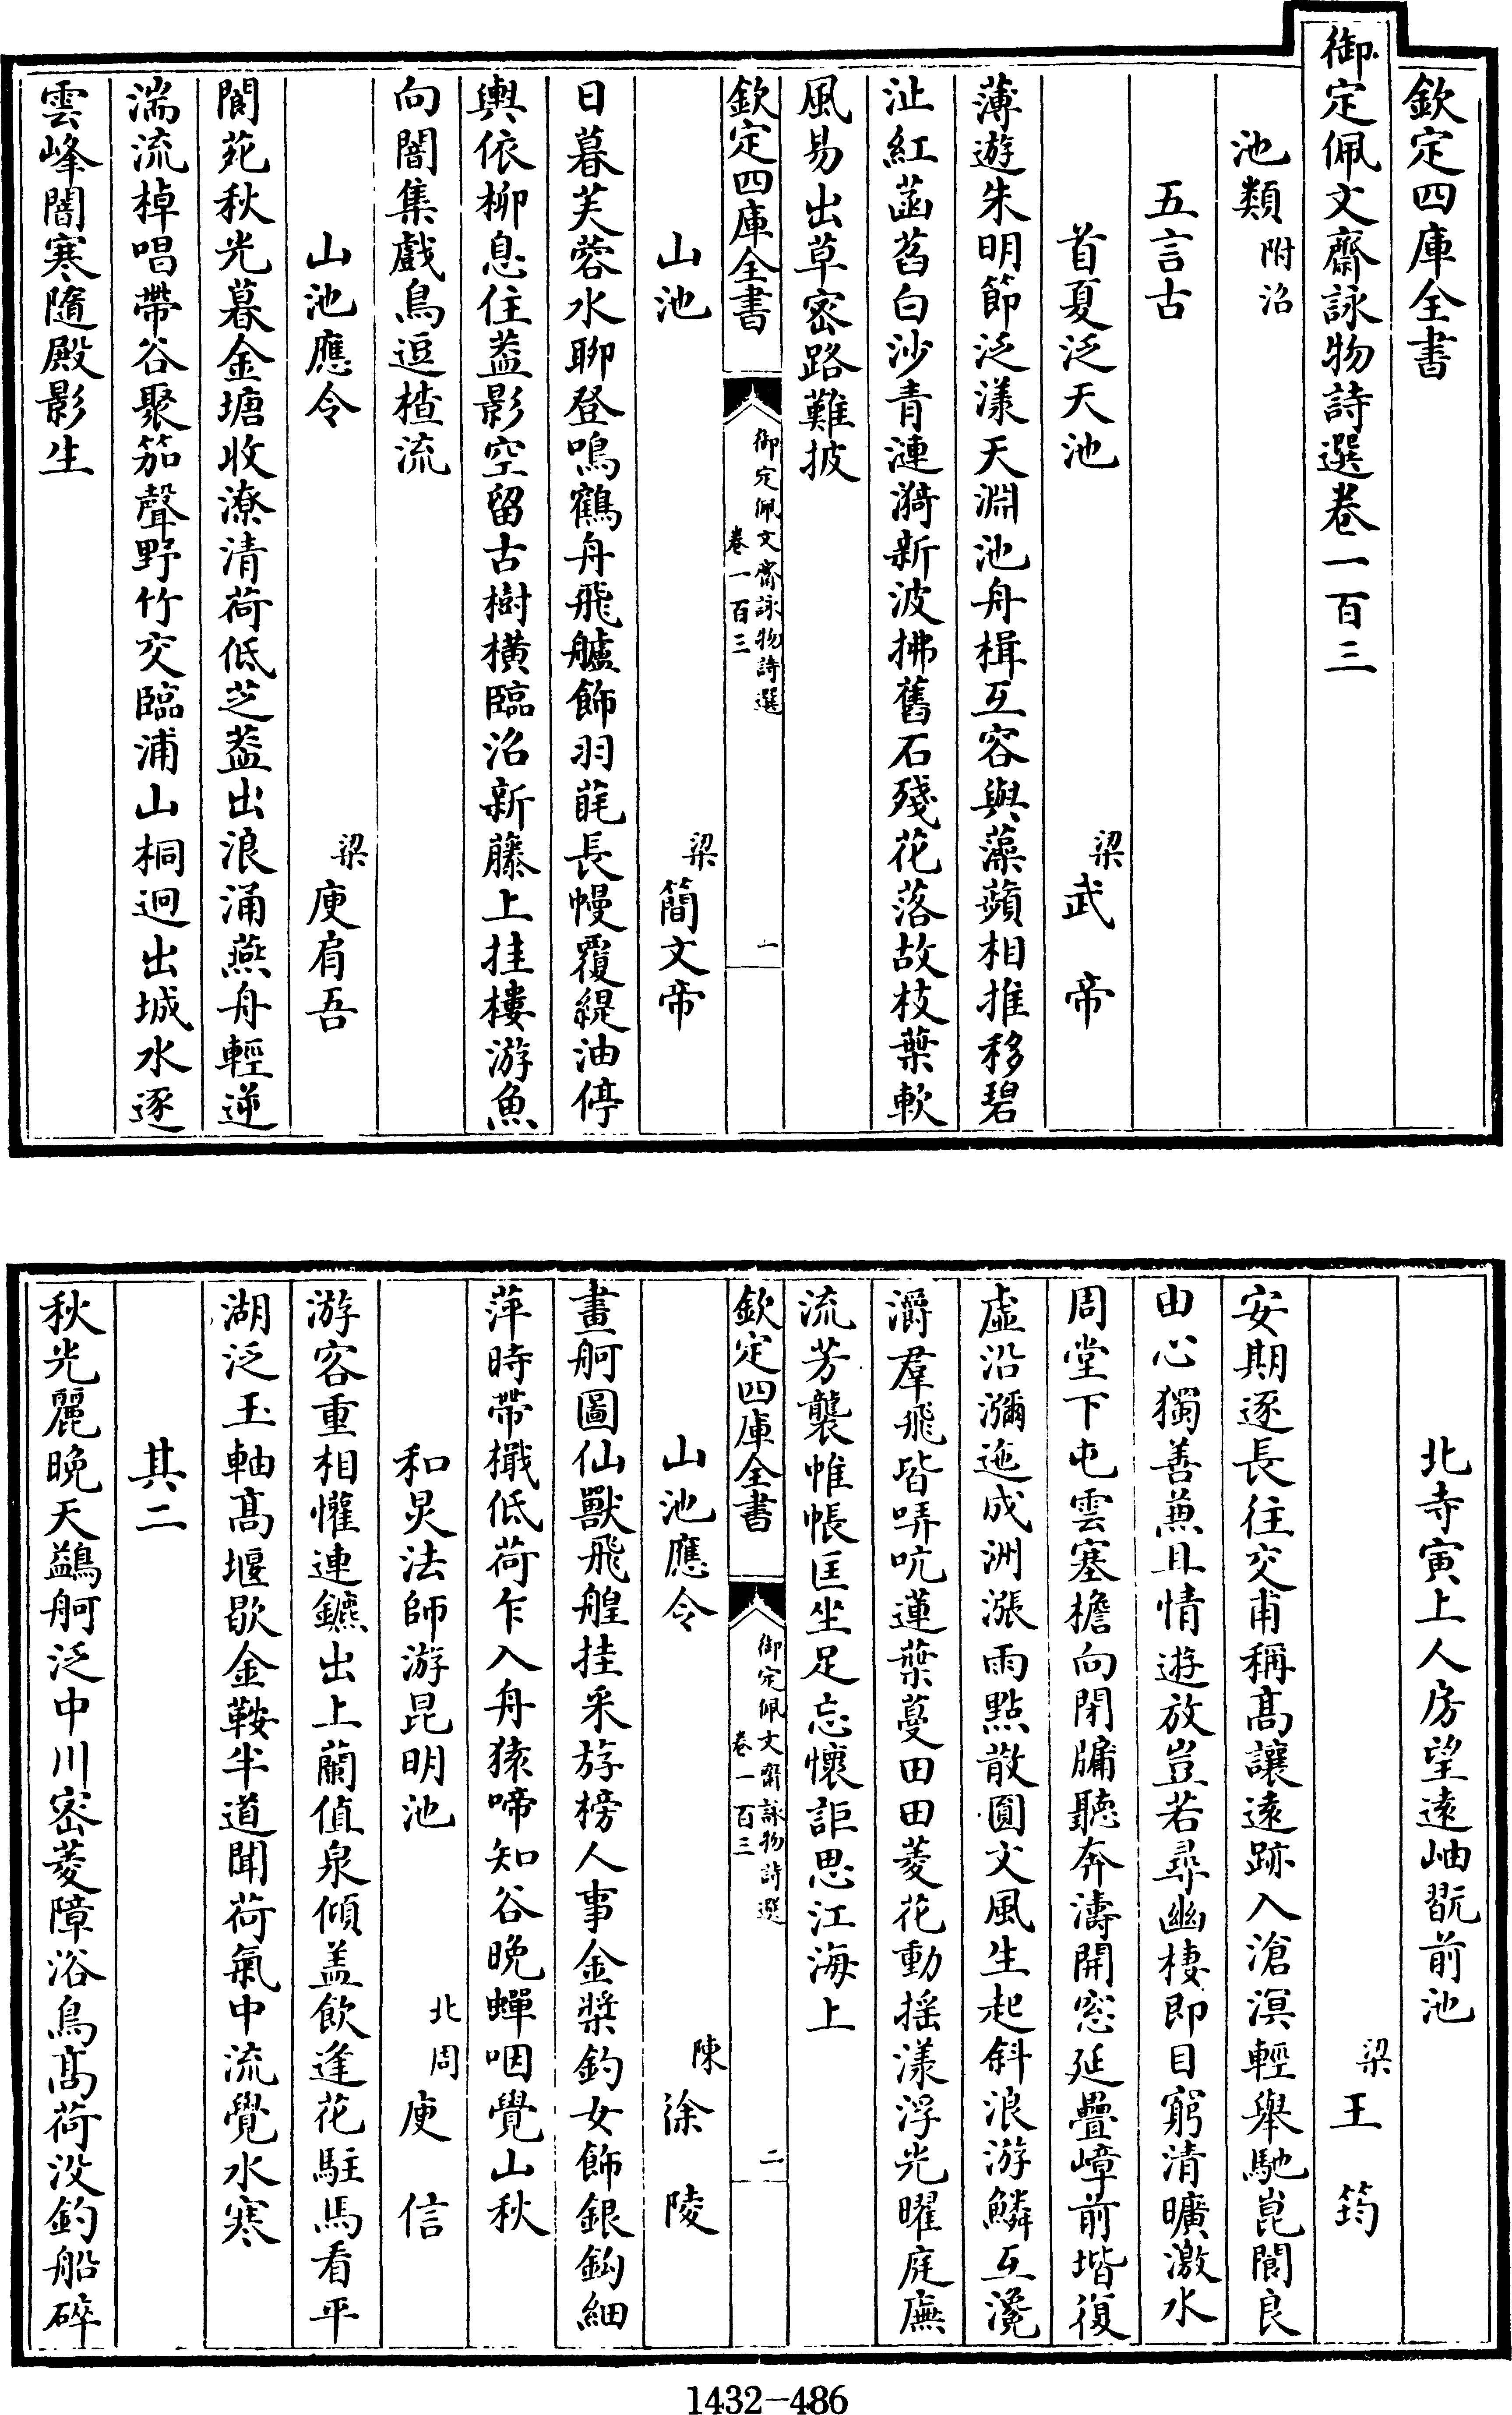 欽定四庫全書
御定佩文齋詠物詩選卷一百三
池類附沼
五言古
首夏泛天池　梁武帝
薄遊朱明節泛漾天淵池舟楫互容與藻蘋相推移碧
沚紅菡萏白沙青漣漪新波拂舊石殘花落故枝葉軟
風易出草密路難披
欽定四庫全書　御定佩文齋詠物詩選卷一百三　一
山池　梁簡文帝
日暮芙蓉水聊登鳴鶴舟飛艫飾羽毦長幔覆緹油停
輿依柳息住葢影空留古樹橫臨沼新藤上挂樓游魚
向闇集戲鳥逗楂流
山池應令　梁庾肩吾
閬苑秋光暮金塘收潦清荷低芝葢出浪涌燕舟輕逆
湍流棹唱帶谷聚笳聲野竹交臨浦山桐迥出城水逐
雲峰闇寒隨殿影生
北寺寅上人房望遠岫翫前池
梁王筠
安期逐長往交甫稱髙讓遠跡入滄溟輕舉馳崑閬良
由心獨善兼且情遊放豈若尋幽棲即目窮清曠激水
周堂下屯雲塞檐向閉牖聽奔濤開窓延疊嶂前堦復
虛沿瀰迤成洲漲雨點散圓文風生起斜浪游鱗互瀺
灂羣飛皆哢吭蓮葉蔓田田菱花動揺漾浮光曜庭廡
流芳襲帷帳匡坐足忘懷詎思江海上
欽定四庫全書　御定佩文齋詠物詩選卷一百三　二
山池應令　陳徐陵
畫舸圖仙獸飛艎挂采斿榜人事金槳釣女飾銀鉤細
萍時帶檝低荷乍入舟猿啼知谷晚蟬咽覺山秋
和炅法師游昆明池　北周庾信
游客重相懽連鑣出上蘭值泉傾盖飲逢花駐馬看平
湖泛玉軸髙堰歇金鞍半道聞荷氣中流覺水寒
其二
秋光麗晚天鷁舸泛中川密菱障浴鳥髙荷没釣船碎
1432-486